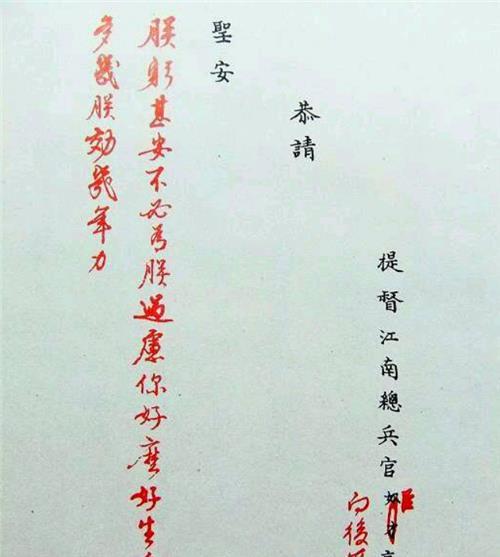 提督江南總兵官奴才
臣
向後
恭請
聖安
朕躬甚安不必為朕過慮你好麽好生
多與朕効幾年力